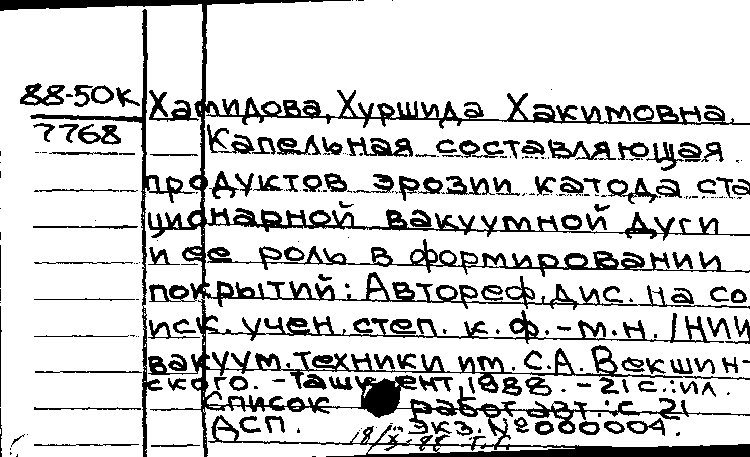 88-50К
7768
Хамидова, Хуршида Хакимовна.
Капельная составляющая
продуктов эрозии катода ста
ционарной вакуумной дуги
и ее роль в формировании
покрытий: Автореф. дис. на со
иск. учен. степ. к. ф.-м. н. /НИИ
вакуум. техники им. С.А. Векшин-
ского. - Ташкент, 1988. - 21 с.: ил.
Список работ авт.: с. 21
ДСП. Экз. № 000004.